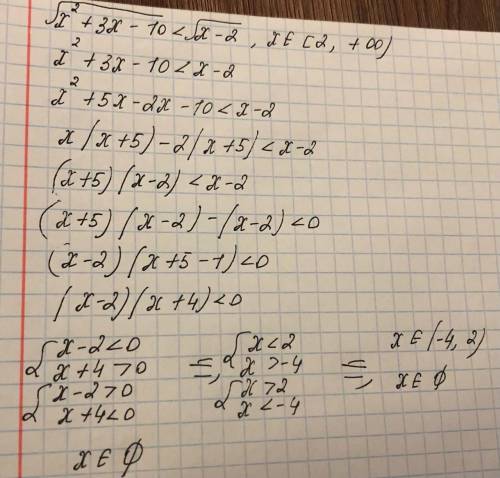 √x² + 3x - 10 < √x - 2 , x ∈ [2, +∞)
x² + 3x - 10 < x - 2
x² + 5x - 2x - 10 < x - 2
x(x+5) - 2(x+5) < x - 2
(x+5)(x-2) < x - 2
(x+5)(x-2) - (x-2) < 0
(x-2)(x+5-1) < 0
(x-2)(x+4) < 0
{ x-2<0 =, { x<2 =, x ∈ (-4, 2)
x+4>0 x>-4
{ x-2>0 { x>2 x ∈ ∅
x+4<0 x<-4
x ∈ ∅